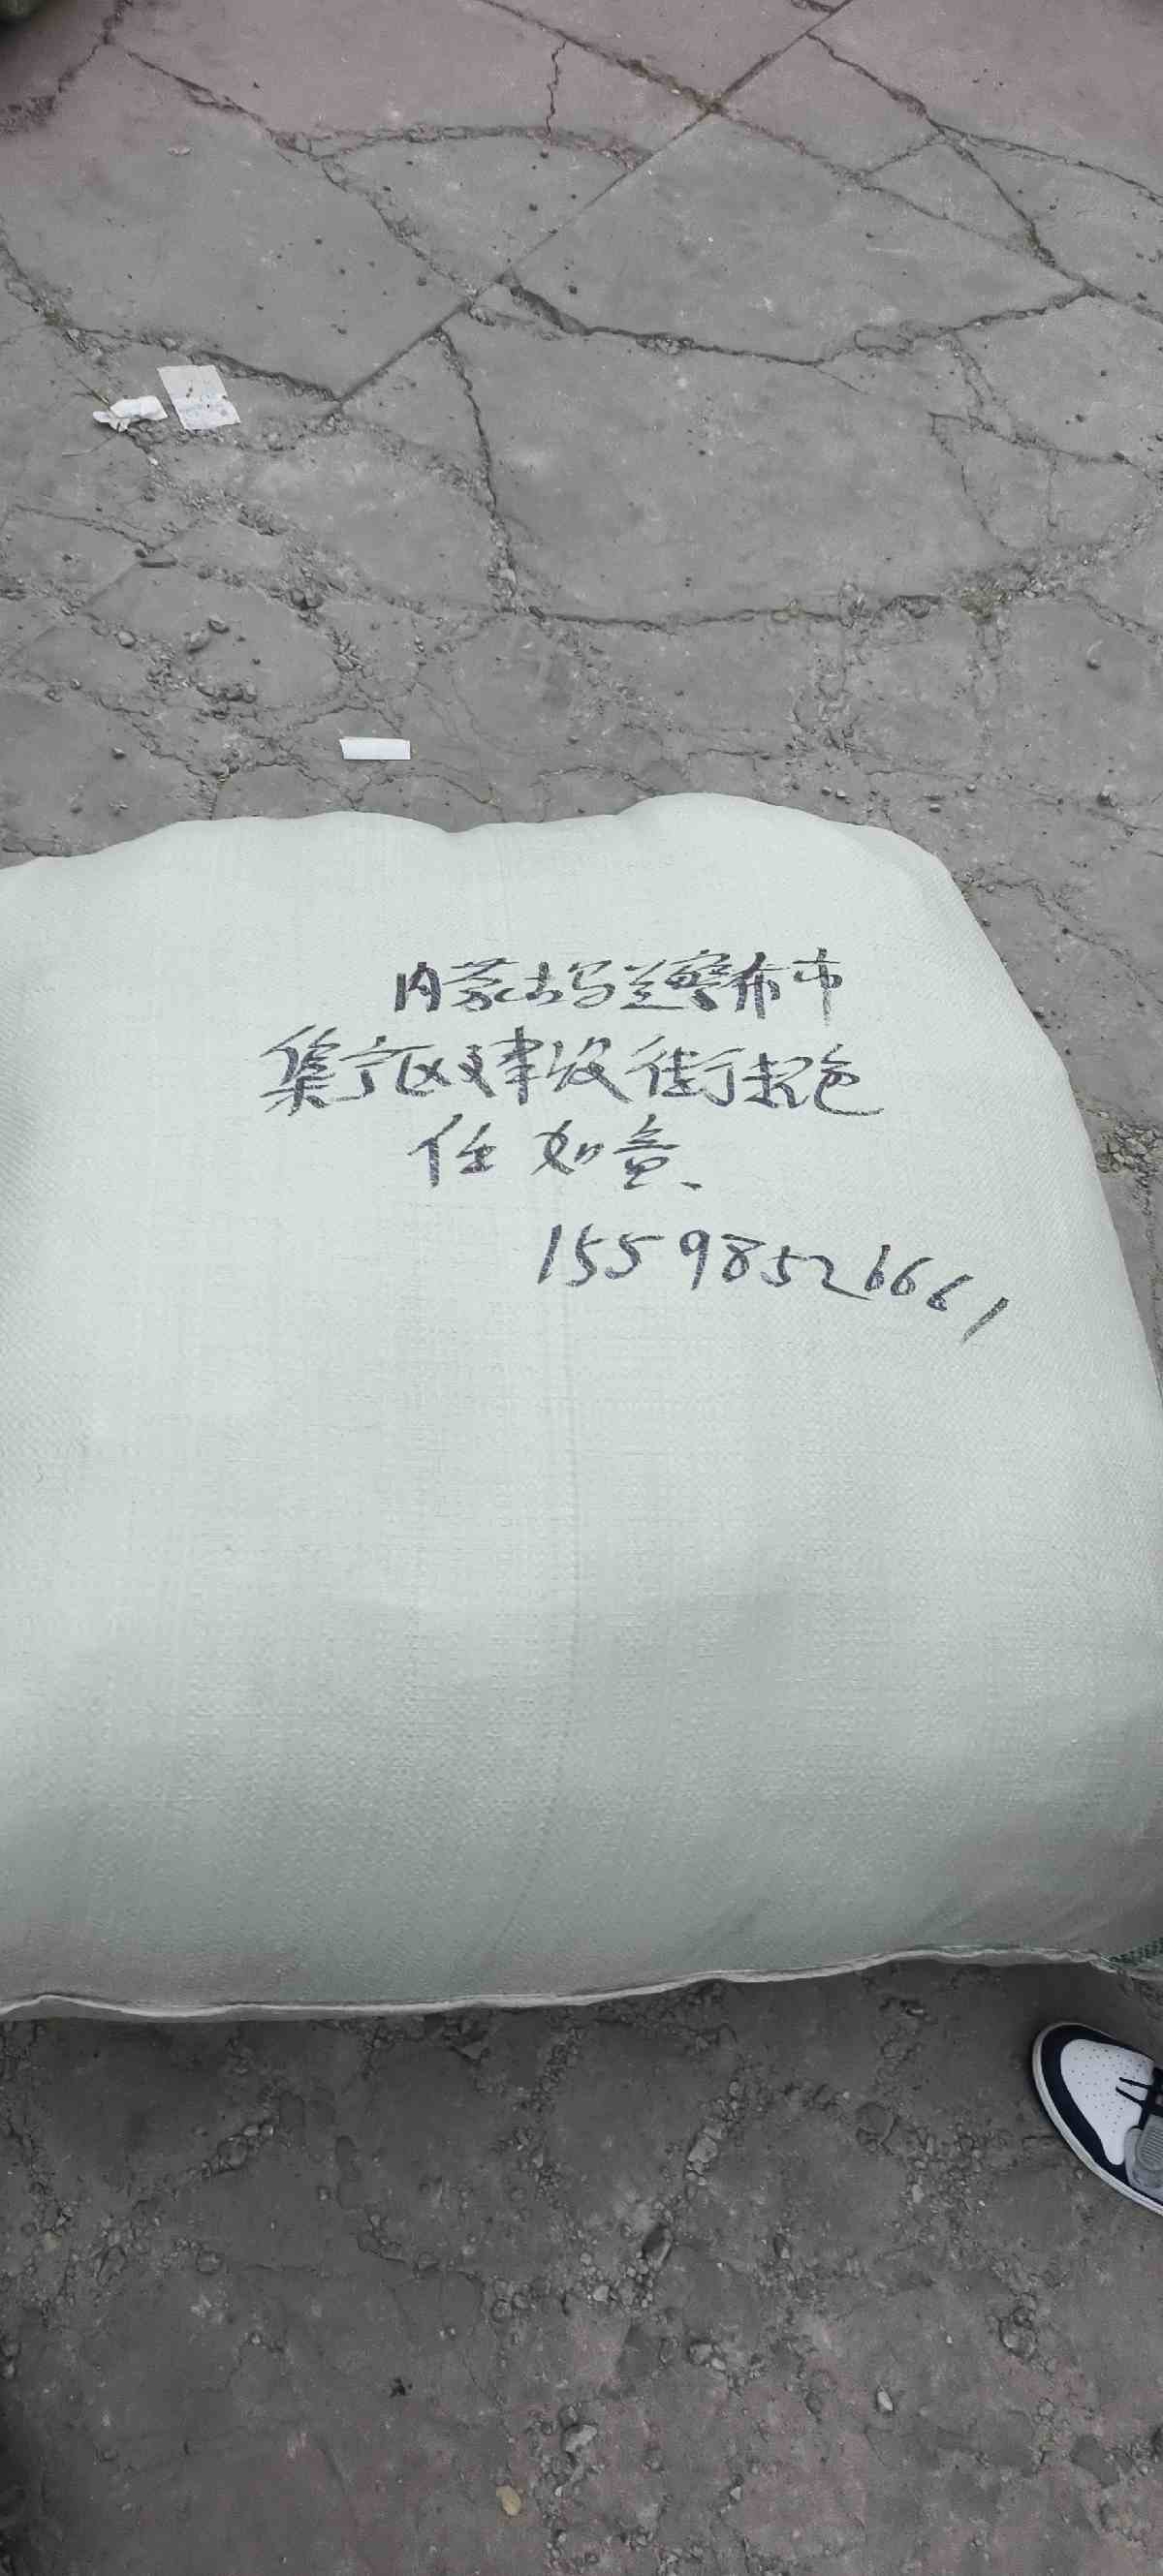 内蒙古乌兰察布市
集宁区建设街起色
任如意、
15598526661